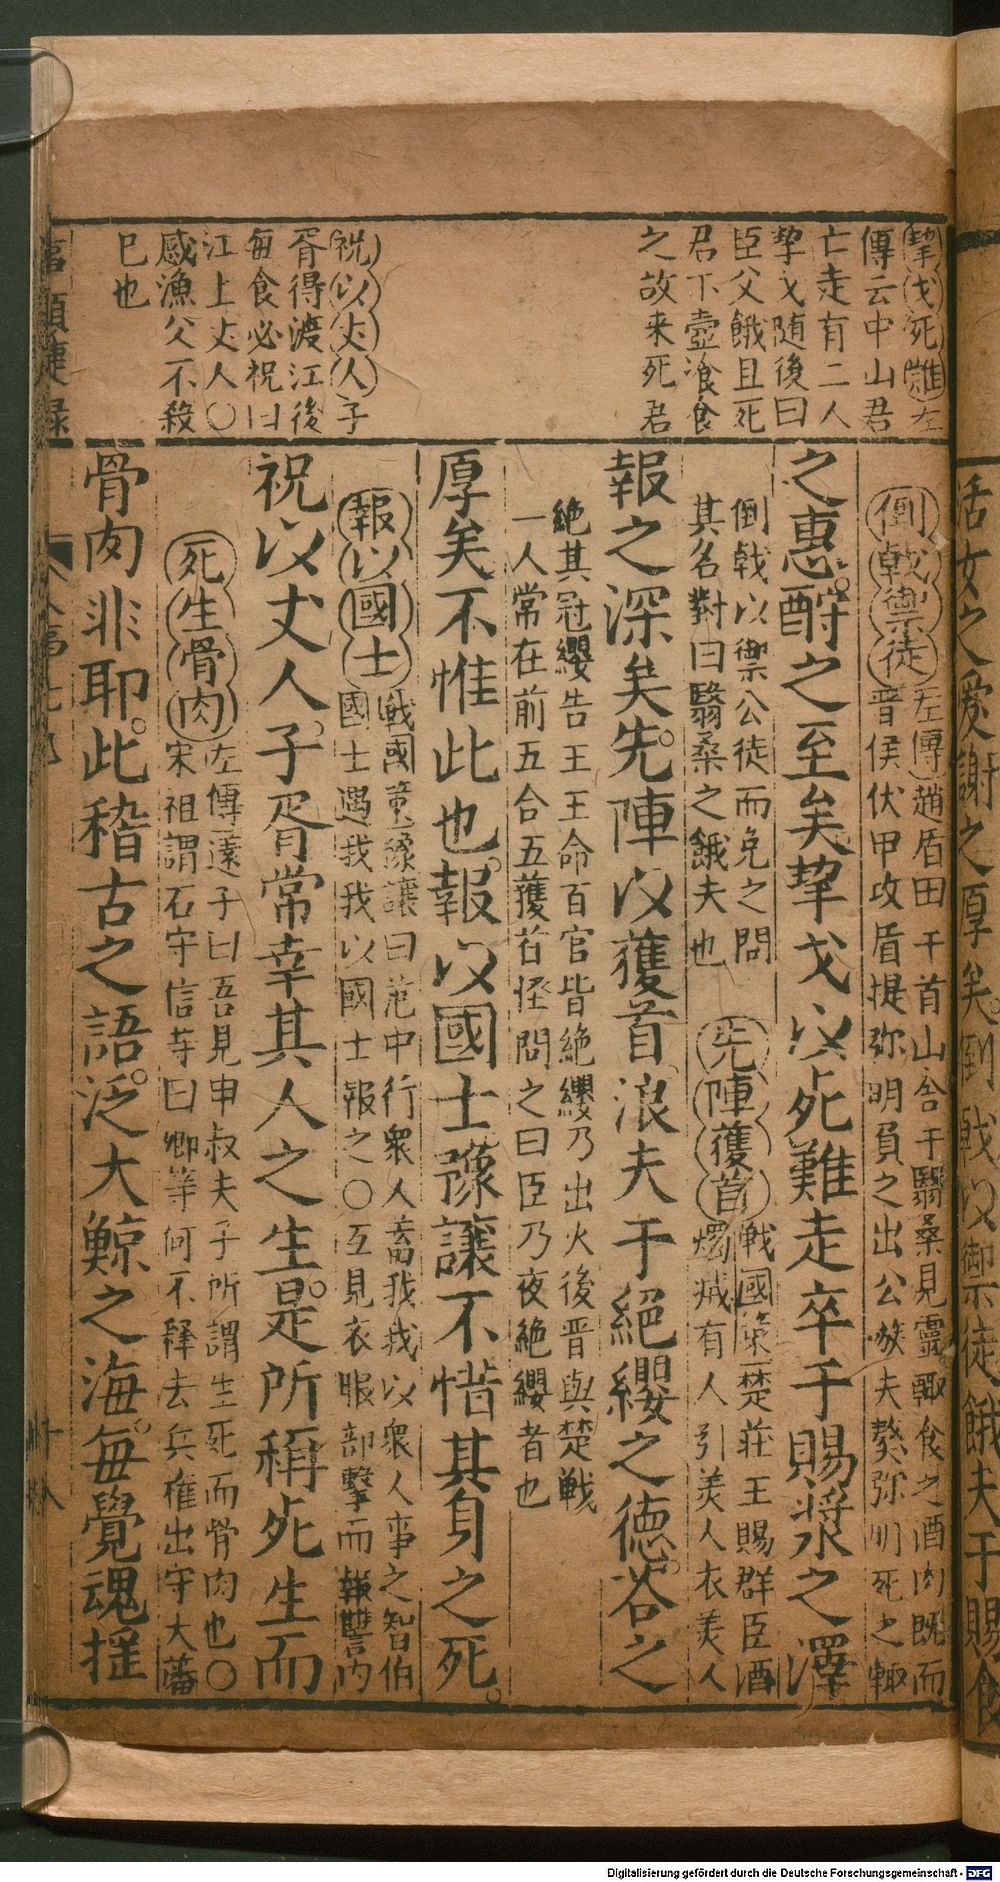 挈戈死難左
傳云中山君
亡走有二人
挈戈随後曰
臣父餓且死
君下壺飡食
之故来死君
祝以丈人子
胥得渡江後
每食必祝曰
江上丈人○
感漁父不殺
巳也
倒戟禦徒左傳趙盾田于首山舍于翳桑見靈輒食之酒肉既而
晋侯伏甲攻盾提弥明負之出公嗾夫獒弥明死之輒
之惠酧之至矣挈戈以死難走卒于賜漿之澤
倒戟以禦公徒而免之問
其名對曰翳桑之餓夫也
先陣獲首戦國策楚莊王賜群臣酒
燭滅有人引美人衣美人
報之深矣先陣以獲首浪夫于絕纓之德荅之
絶其冠纓告王王命百官皆絶纓乃出火後晋與楚戦
一人常在前五合五獲首怪問之曰臣乃夜絶纓者也
厚矣不惟此也報以國士豫讓不惜其身之死
報以國士戦國䇿豫讓曰范中行衆人畜我我以衆人事之智伯
國士遇我我以國士報之○互見衣服部擊而報讐内
祝以丈人子胥常幸其人之生是所稱死生而
死生骨肉左傳薳子曰吾見申叔夫子所謂生死而骨肉也○
宋祖謂石守信等曰卿等何不釋去兵權出守大藩
骨肉非耶此稽古之語泛大鯨之海每覺魂揺
活女之爰謝之厚矣倒戟以御徒餓夫于賜食